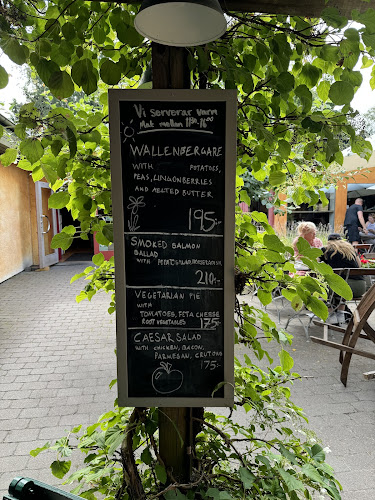 Vi serverar varm
Mat mellan 11
WALLENBERGARE
WITH POTATOES,
PEAS, LINGONBERRIES
AND MELTED BUTTER
195:-
SMOKED SALMON
BALLAD
WITH POTATOSALAD,
210:-
VEGETARIAN PIE
WITH
TOMATOES, FETA CHEESE
ROOT VEGETABLES 175:-
CAESAR SALAD
WITH CHICKEN, BACON,
PARMESAN, CRUTONS
175:-